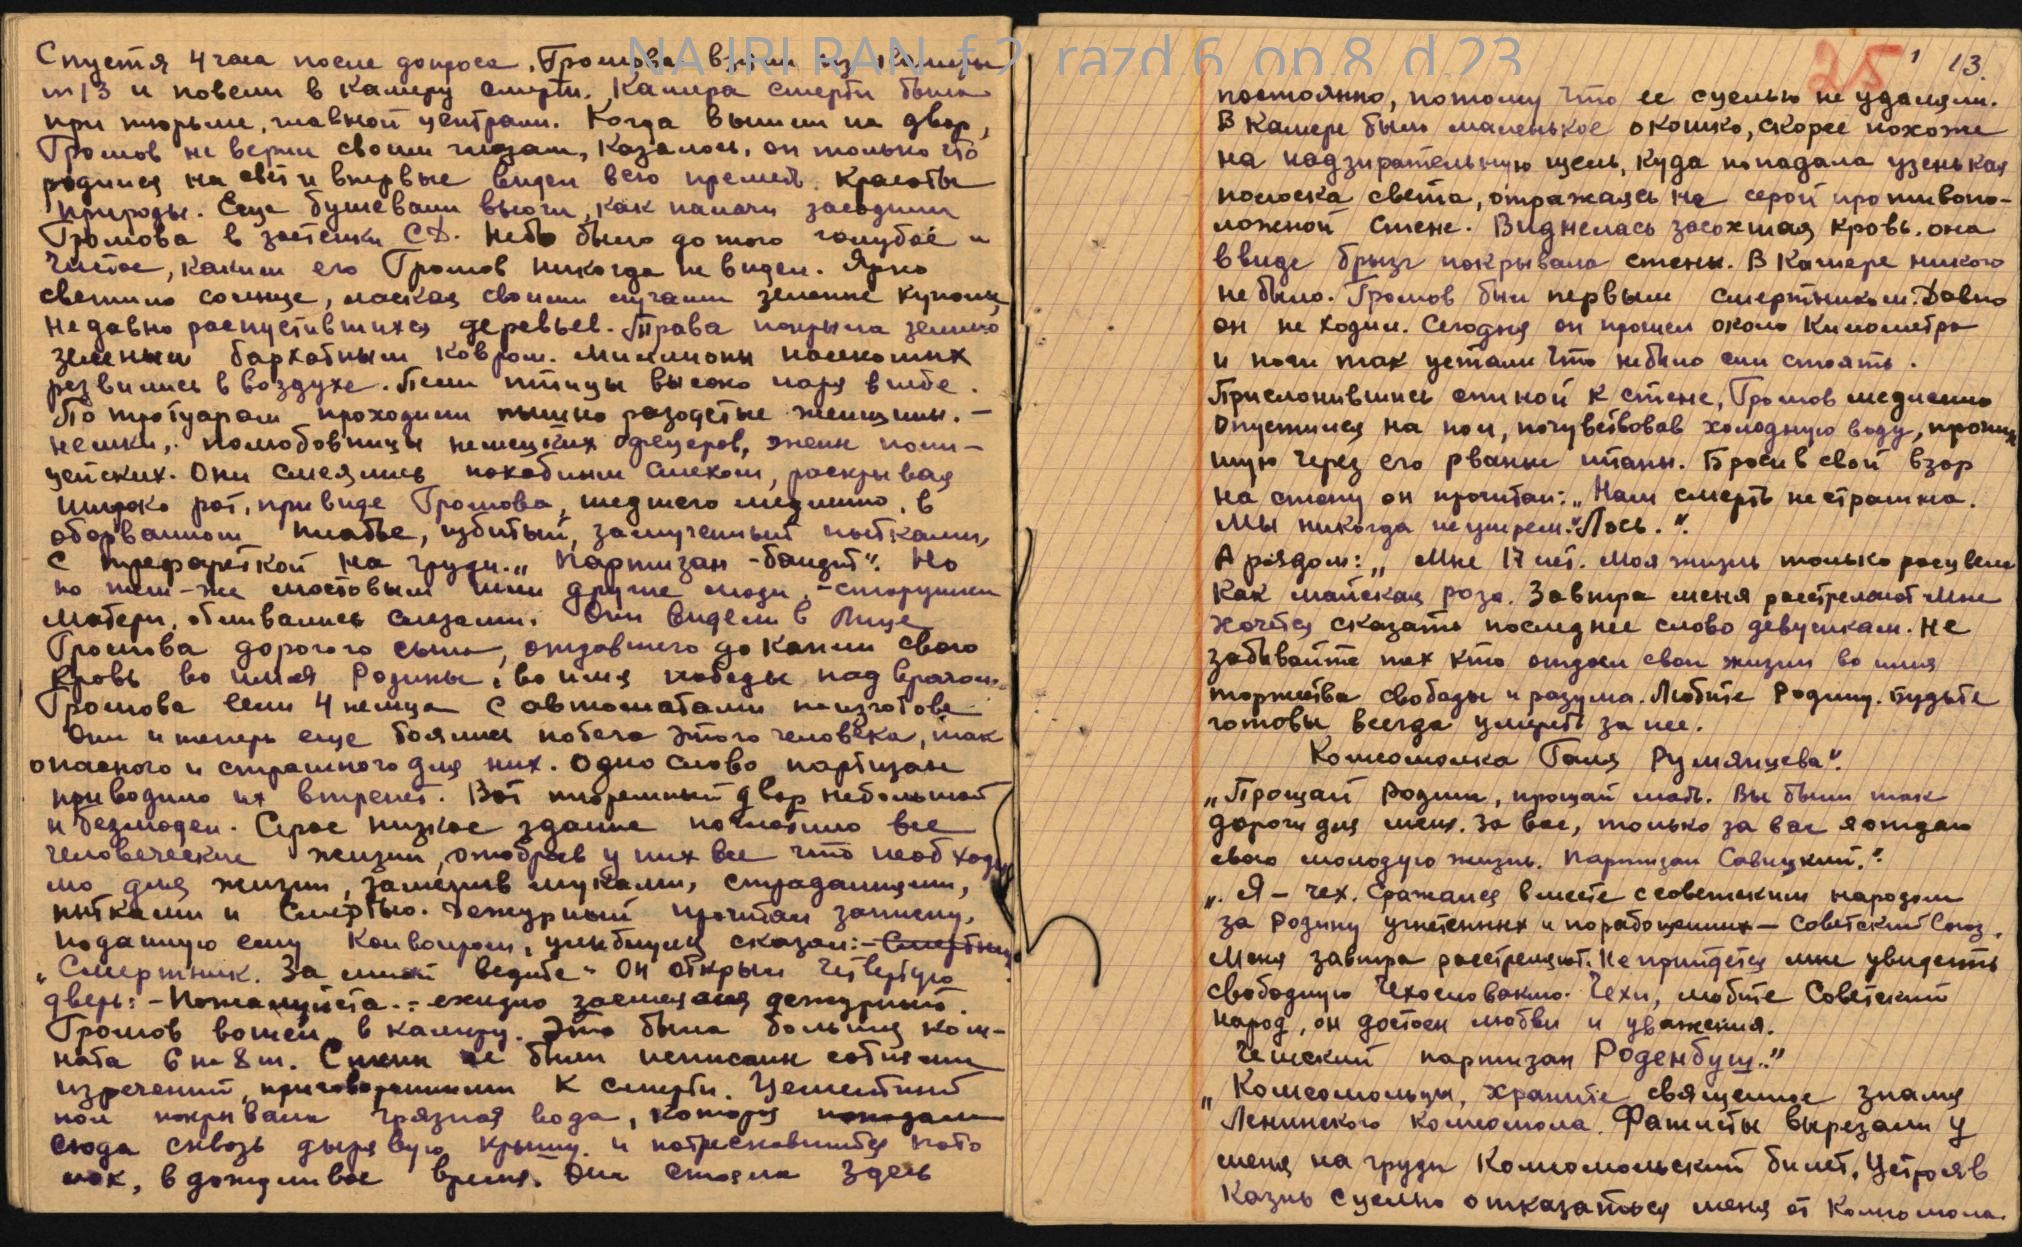 NA IRI RAN f.2 razd.6 op.8 d.23
Спустя 4 часа после допроса, Громова взяли из камеры
m 13 и повели в камеру смерти. Камера смерти была
при тюрьме, главной централи. Когда вышли на двор,
Громов не верил своим глазам, казалось, он только что
родился на свет и впервые видел всю прелесть красоты
природы. Еще бушевали вьюги, как палачи заводили
Громова в застенки СД. Небо было до того голубое и
чистое, каким его Громов никогда не видел. Ярко
светило солнце, лаская своими лучами зеленые купола
недавно распустившихся деревьев. Трава покрыла землю
зеленым бархатным ковром. Миллионы насекомых
резвились в воздухе. Пели птицы высоко паря в небе.
По тротуарам проходили пышно разодетые женщины. –
немки, полюбовницы немецких офецеров, жены поли-
цейских. Они смеялись похабным смехом, раскрывая
широко рот, при виде Громова, шедшего медленно, в
оборванном платье, избитый, замученный пытками,
с трефареткой на груди „Партизан-бандит". Но
по тем-же мостовым шли другие люди, -старушки
матери, обливались слезами. Они видели в лице
Громова дорогого сына, отдавшего до капли свою
кровь во имя Родины, во имя победы над врагом.
Громова вели 4 немца с автоматами наизготове
Они и теперь еще боялись побега этого человека, так
опасного и страшного для них. Одно слово партизан
приводило их в трепет. Вот тюремный двор небольшой
и безлюден. Серое низкое здание поглотило все
человеческие жизни, отобрав у них все что необходи
мо для жизни, заменив муками, страданиями,
пытками и смертью. Дежурный прочитал записку,
поданную ему конвоиром, улыбнулся сказал: – Смертник
„Смертник. За мной ведите" Он открыл четвертую
дверь: – Пожалуйста. – ехидно засмеялся дежурный.
Громов вошел в камеру. Это была большая ком-
ната 6 m 8 m. Стены ее были исписаны сотнями
изречений, приговоренными к смерти. Цементный
пол покрывала грязная вода, которая попадала
сюда сквозь дырявую крышу и потрескавшийся пото
лок, в дождливое время. Она стояла здесь
25 13.
постоянно, потому что ее суелью не удаляли.
В камере было маленькое окошко, скорее похоже
на надзирательную щель, куда попадала узенькая
полоска света, отражаясь на серой противопо-
ложной стене. Виднелась засохшая кровь. она
ввиде брызг покрывала стены. В камере никого
не было. Громов был первым смертником. Давно
он не ходил. Сегодня он прошел около километра
и ноги так устали что небыло сил стоять.
Прислонившись спиной к стене, Громов медленно
опустился на пол, почувствовав холодную воду, проник
шую через его рваные штаны. Бросив свой взор
на стену он прочитал: „Нам смерть не страшна.
Мы никогда не умрем." Лось.".
А рядом: „Мне 17 лет. Моя жизнь только расцвела
как майская роза. Завтра меня расстреляют Мне
хочется сказать последнее слово девушкам. Не
забывайте тех кто отдал свои жизни во имя
торжества свободы и разума. Любите Родину. Будьте
готовы всегда умереть за нее.
Комсомолка Галя Румянцева".
„Прощай Родина, прощай мать. Вы были так
дороги для меня. За вас, только за вас я отдаю
свою молодую жизнь. Партизан Савицкий."
„Я – чех. Сражался вместе с советским народом
за Родину угнетенных и порабощенных – Советский Союз.
Меня завтра расстреляют. Не прийдется мне увидеть
свободную Чехословакию. Чехи, любите Советский
народ, он достоен любви и уважения.
Чешский партизан Роденбуш."
„Комсомольцы, храните священное знамя
Ленинского комсомола. Фашисты вырезали у
меня на груди Комсомольский билет. Устрояв
казнь суелью отказаться меня от комсомола.